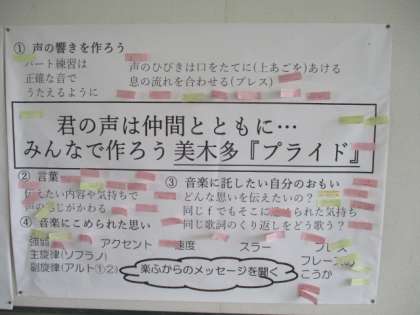 ① 声の響きを作ろう
パート練習は
正確な音で
うたえるように
声のひびきは口をたてに(上あごを)あける
息の流れを合わせる(ブレス)
君の声は仲間とともに…
みんなで作ろう 美木多『プライド』
② 言葉
伝えたい内容や気持ちで
声の かんじがかわる
③ 音楽に託したい自分のおもい
どんな思いを伝えたいの?
同じfでもそこに められた気持ち
同じ歌詞のくり返しをどう歌う?
④ 音楽にこめられた思い
強弱 アクセント 速度 スラー ブレス
主旋律(ソプラノ)
副旋律(アルト①②)
フレーズの
こうか
楽ふからのメッセージを聞く